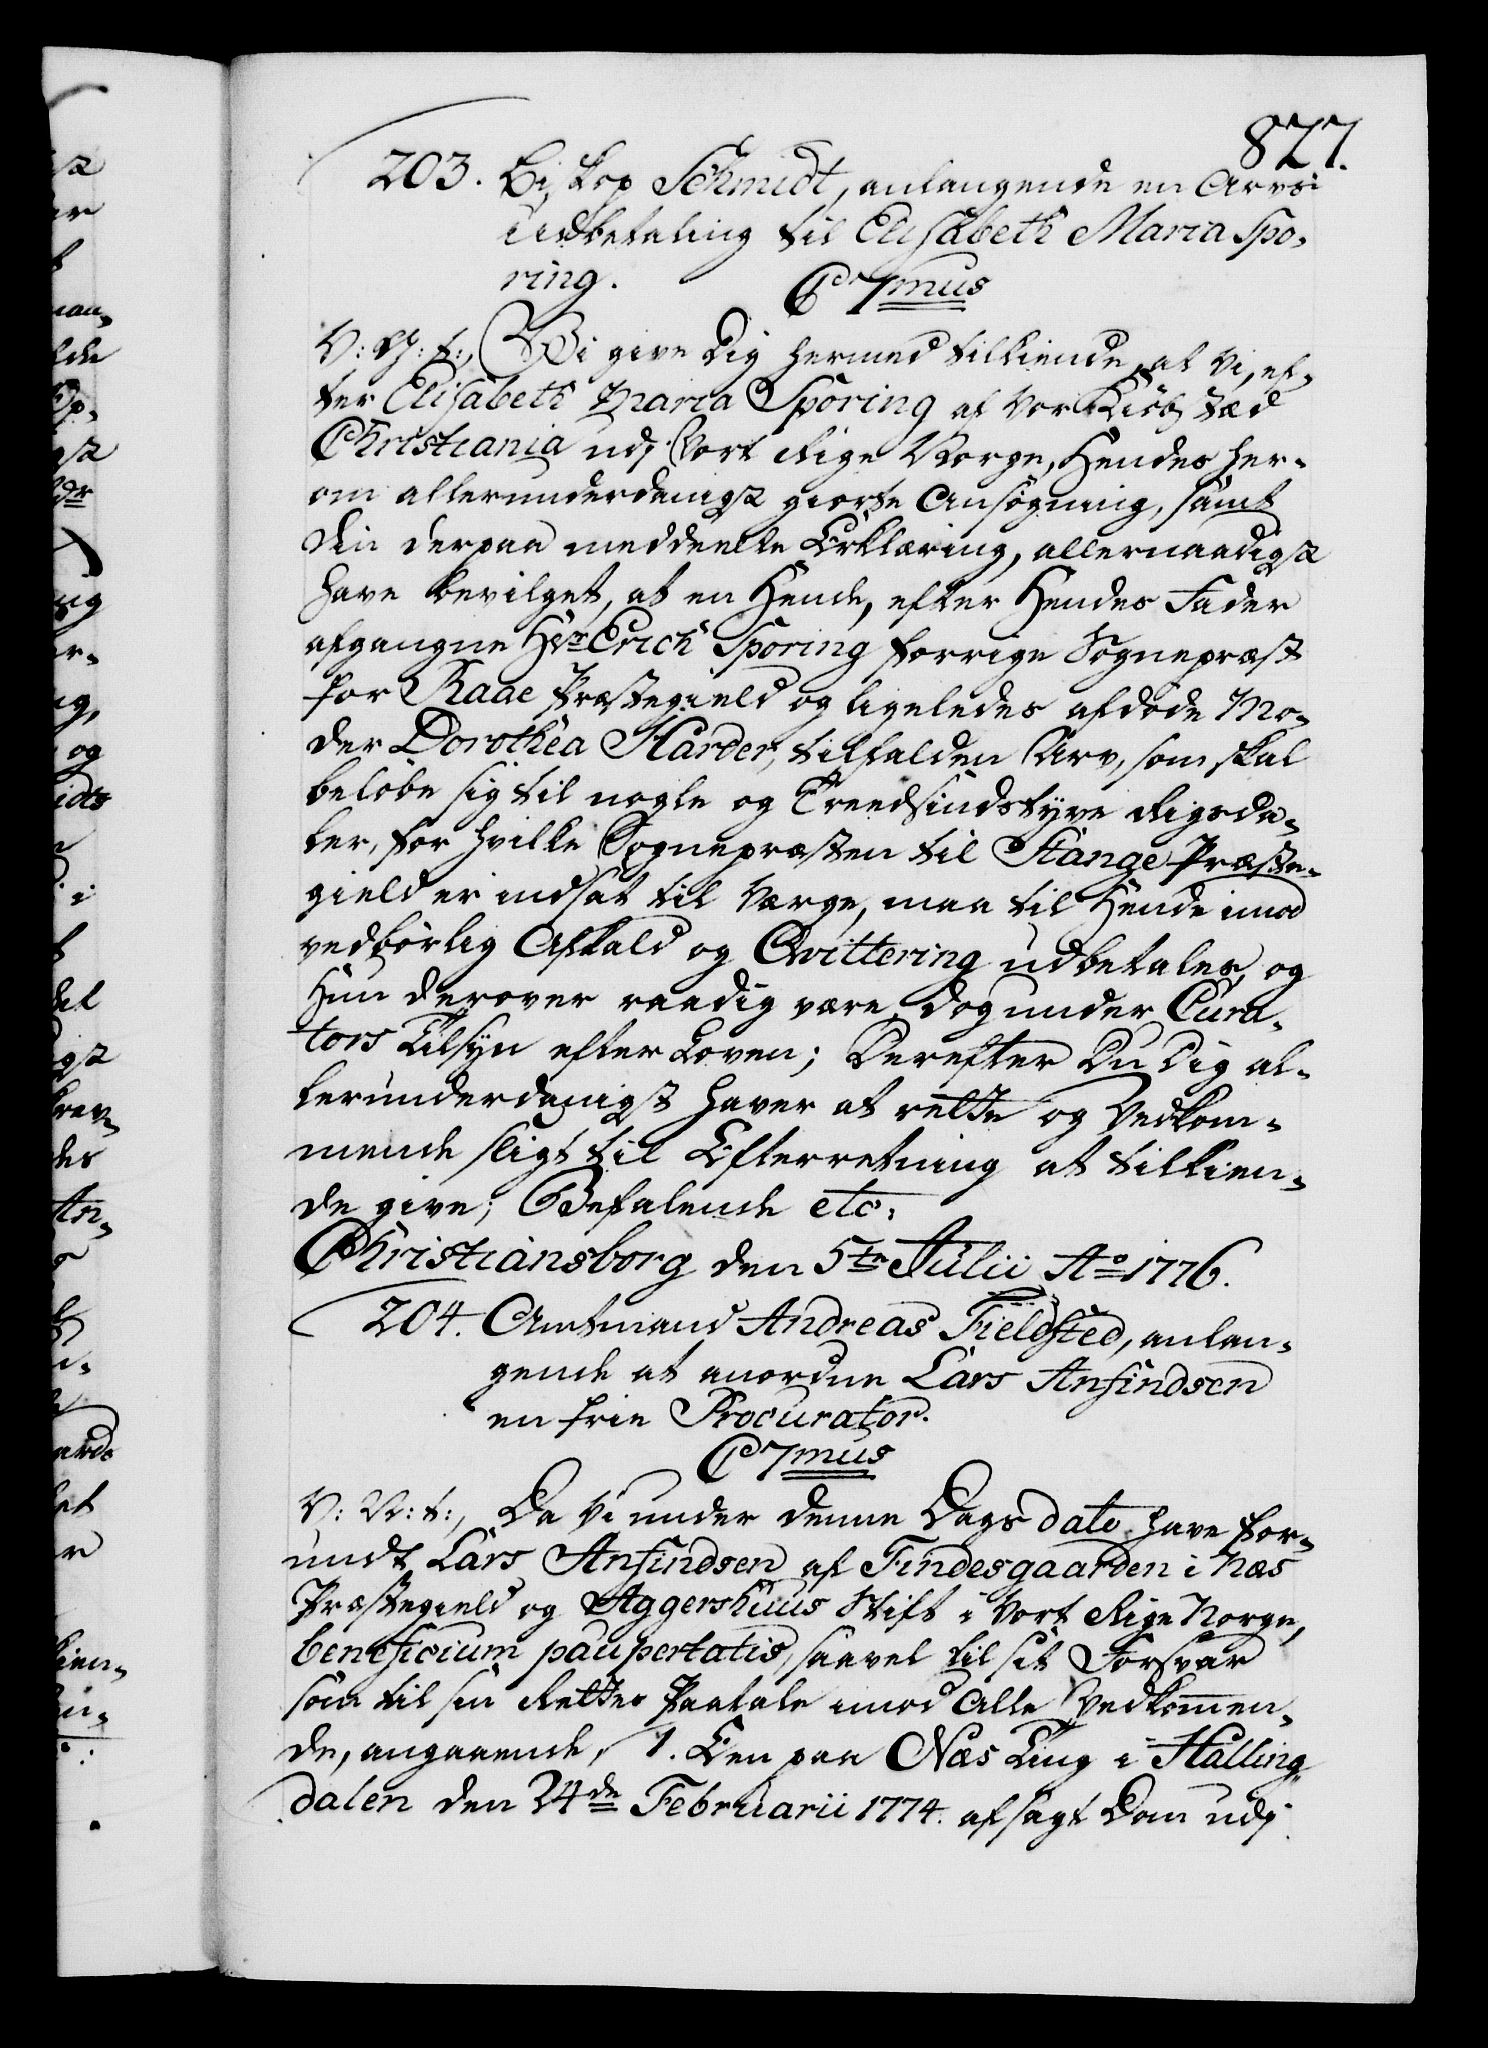 827.
203. Biskop Schmidt, anlangende en Arvs
Udbetaling til Elisabeth Maria Spø-
ring. C 7mus
V: G: t:, Wi give Dig hermed tilkiende, at Vi, ef-
ter Elisabeth Maria Spøring af Vor Kiøbstæd
Christiania udj Vort Rige Norge, Hendes her-
om allerunderdanigst giorte Ansøgning, samt
din derpaa meddeelte Erklæring, allernaadigst
have bevilget, at en Hende, efter Hendes Fader
afgangne Hr Erich Spøring forrige Sognepræst
for Raae Præstegield og ligeledes afdøde Mo-
der Dorothea Harder, tilfalden Arv, som skal
beløbe sig til nogle og Treedsindstyve Rigsda-
ler, for hvilke Sognepræsten til Stange Præste-
gield er indsat til Værge, maa til Hende imod
vedbørlig Afkald og Qvittering udbetales, og
Hun derover raadig være, dog under Cura-
tors Tilsyn efter Loven; Derefter Du Dig al-
lerunderdanigst haver at rette og Vedkom-
mende sligt til Efterretning at tilkien-
de give; Befalende etc.
Christiansborg den 5te Julii Ao 1776.
204. Amtmand Andreas Fieldsted, anlan-
gende at anordne Lars Anfindsen
en frie Procurator.
C 7mus
V: G: t:, Da Vi under denne Dags dato have for-
undt Lars Anfindsen af Findesgaarden i Næs
Præstegield og Aggershuus Stift i Vort Rige Norge,
beneficium paupertatis, saavel til sit Forsvar
som til sin Rettes Paatale imod Alle Vedkommen-
de, angaaende, 1. Een paa Næs Ting i Halling-
dalen den 24de Februarii 1774. afsagt Dom udj